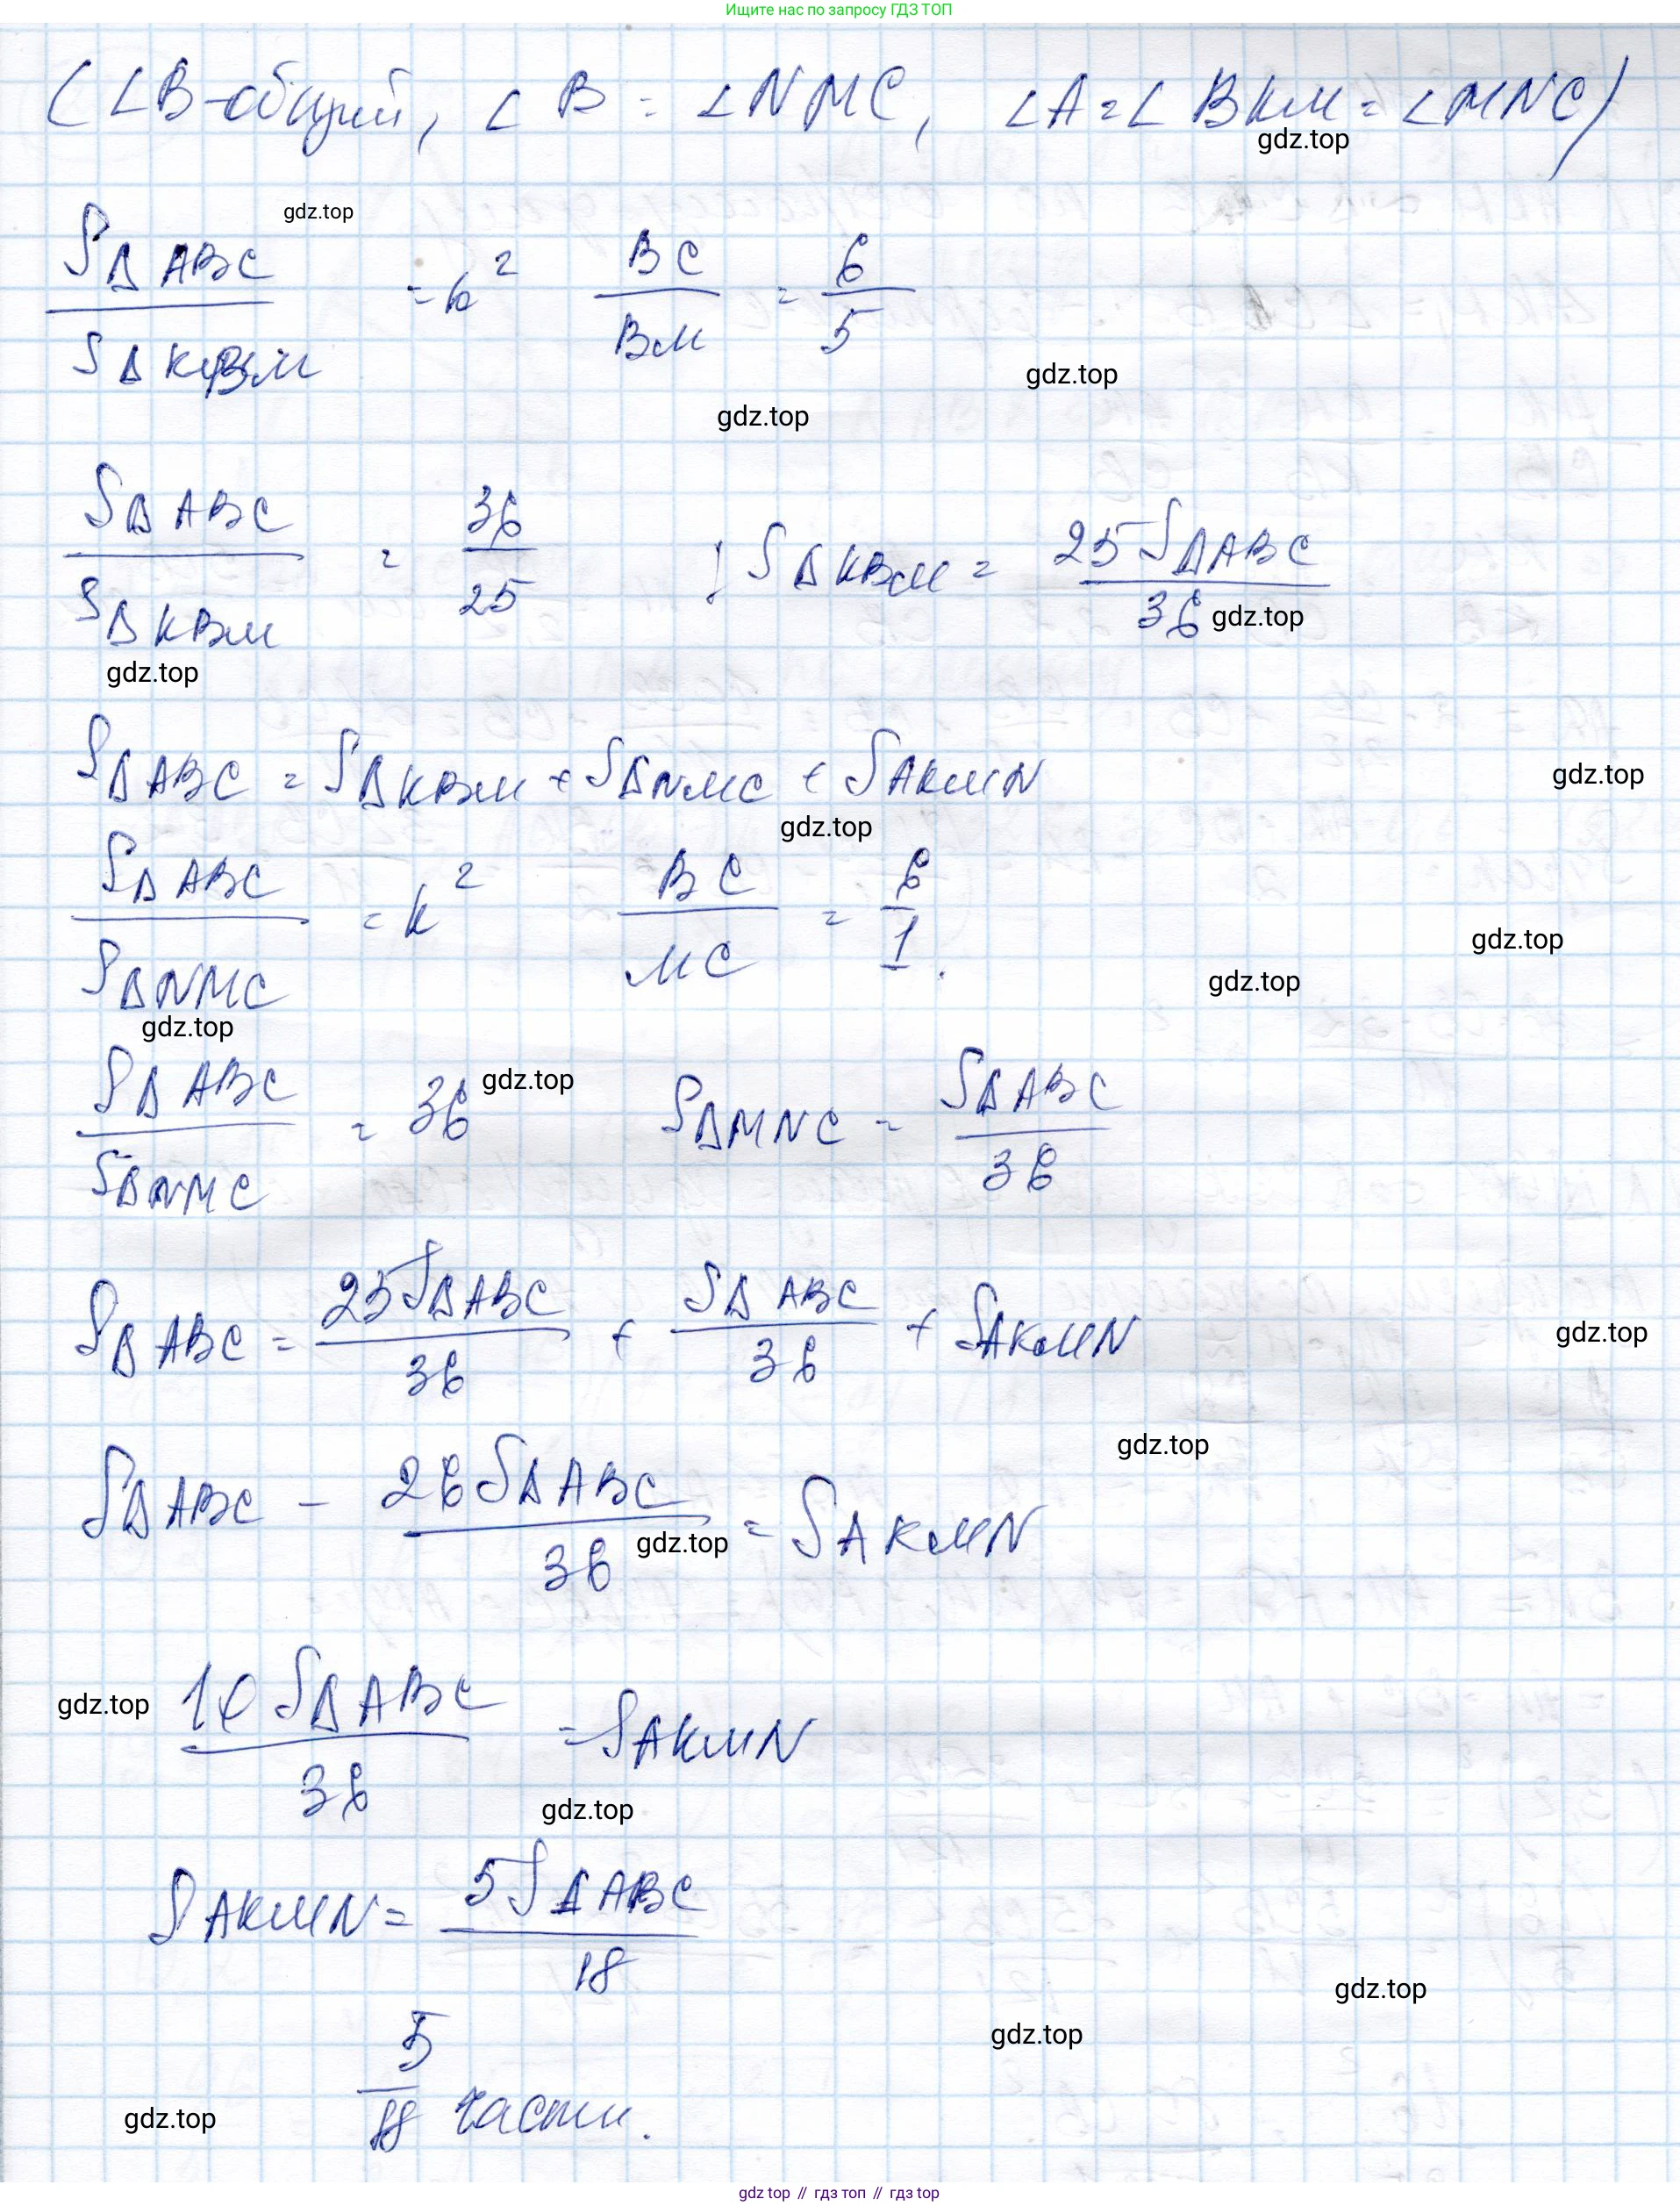 Ищите нас по запросу ГДЗ ТОП
(∠B-общий, ∠B = ∠NMC, ∠A=∠BKM=∠MNC)
gdz.top
gdz.top
S△ABC / S△KBM = k² BC/BM = 6/5
gdz.top
gdz.top
S△ABC / S△KBM = 36/25 ; S△KBM = 25S△ABC / 36
gdz.top
gdz.top
S△ABC = S△KBM + S△NMC + SAKMN
gdz.top
gdz.top
S△ABC / S△NMC = k² BC/MC = 6/1.
gdz.top
gdz.top
gdz.top
S△ABC / S△NMC = 36 S△MNC = S△ABC / 36
gdz.top
S△ABC = 25S△ABC / 36 + S△ABC / 36 + SAKMN
gdz.top
gdz.top
S△ABC - 26S△ABC / 36 = SAKMN
gdz.top
10S△ABC / 36 = SAKMN
gdz.top
gdz.top
SAKMN = 5S△ABC / 18
gdz.top
gdz.top
5/18 части.
gdz.top
gdz top // гдз топ // гдз top